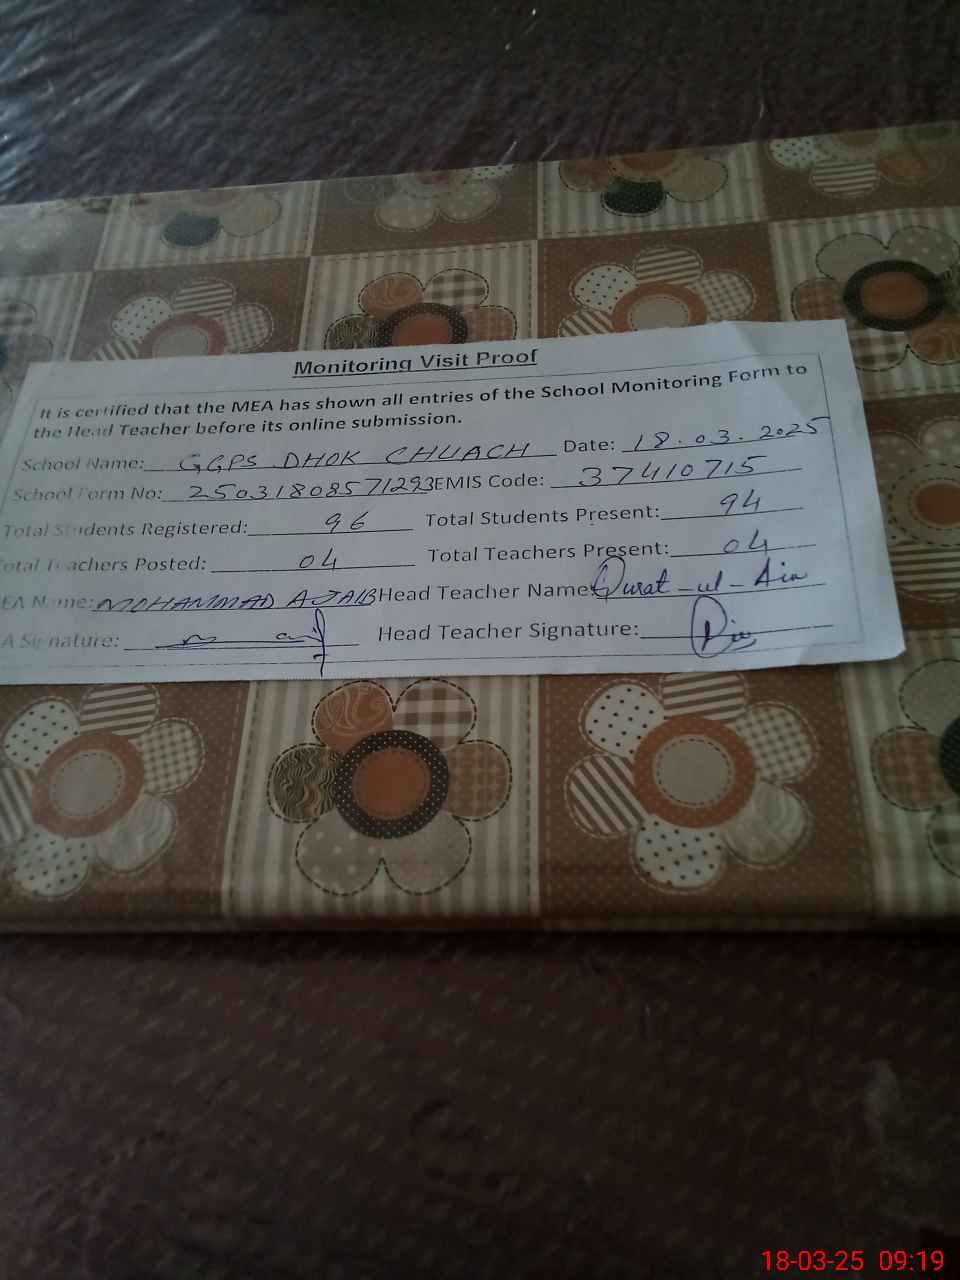 Monitoring Visit Proof
It is certified that the MEA has shown all entries of the School Monitoring Form to
the Head Teacher before its online submission.
School Name: GGPS DHOK CHUACH Date: 18.03.2025
School Form No: 25031808571293 EMIS Code: 37410715
Total Students Registered: 96 Total Students Present: 94
Total Teachers Posted: 04 Total Teachers Present: 04
EA Name: MOHAMMAD AJAIB Head Teacher Name Qurat-ul-Ain
A Signature: Head Teacher Signature:
18-03-25 09:19